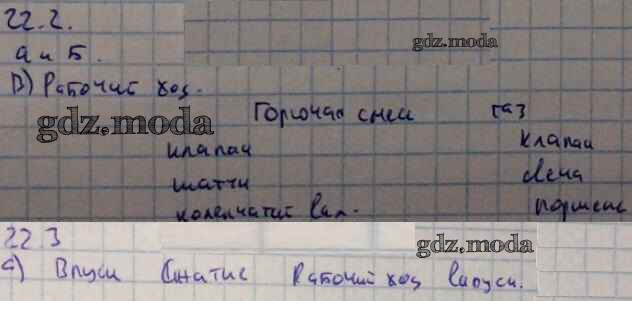 22.2.
а и Б.
gdz.moda
В) Рабочий ход.
Горючая смесь газ
gdz.moda
клапан клапан
шатун свеча
коленчатый вал. поршень
22 3
gdz.moda
а) Впуск Сжатие Рабочий ход выпуск.